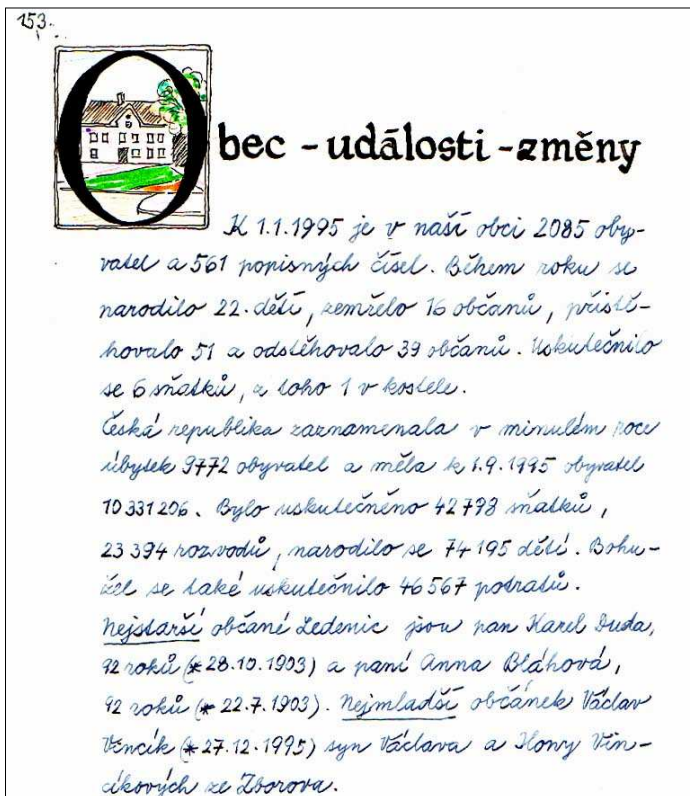 153.
Obec - události - změny
K 1.1.1995 je v naší obci 2085 oby-
vatel a 561 popisných čísel. Během roku se
narodilo 22 dětí, zemřelo 16 občanů, přistě-
hovalo 51 a odstěhovalo 39 občanů. Uskutečnilo
se 6 sňatků, z toho 1 v kostele.
Česká republika zaznamenala v minulém roce
úbytek 9772 obyvatel a měla k 1.9.1995 obyvatel
10 331 206. Bylo uskutečněno 42 798 sňatků,
23 394 rozvodů, narodilo se 74 195 dětí. Bohu-
žel se také uskutečnilo 46 567 potratů.
Nejstarší občané Ledenic jsou pan Karel Duda,
92 roků (* 28.10.1903) a paní Anna Bláhová,
92 roků (* 22.7.1903). Nejmladší občánek Václav
Vincik (* 27.12.1995) syn Václava a Ilony Vin-
cikových ze Zborova.